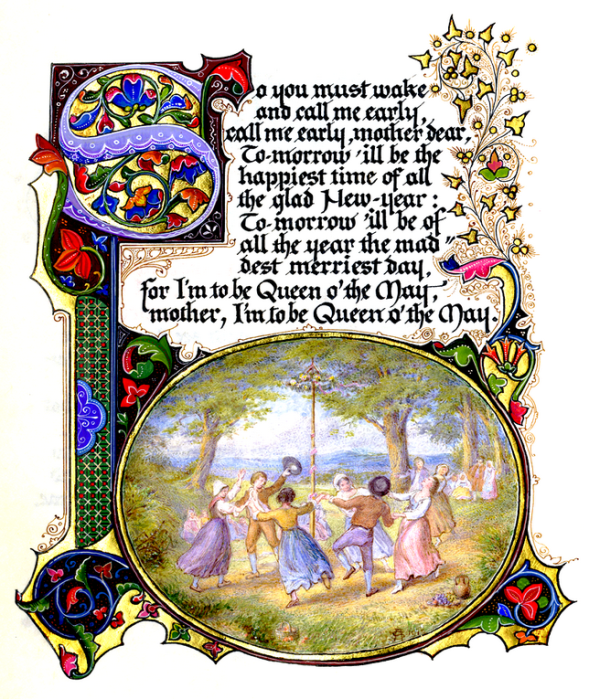 So you must wake
and call me early,
call me early, mother dear,
To-morrow 'ill be the
happiest time of all
the glad New-year:
To-morrow 'ill be of
all the year the mad"
dest merriest day,
for I'm to be Queen o' the May,
mother, I'm to be Queen o' the May.